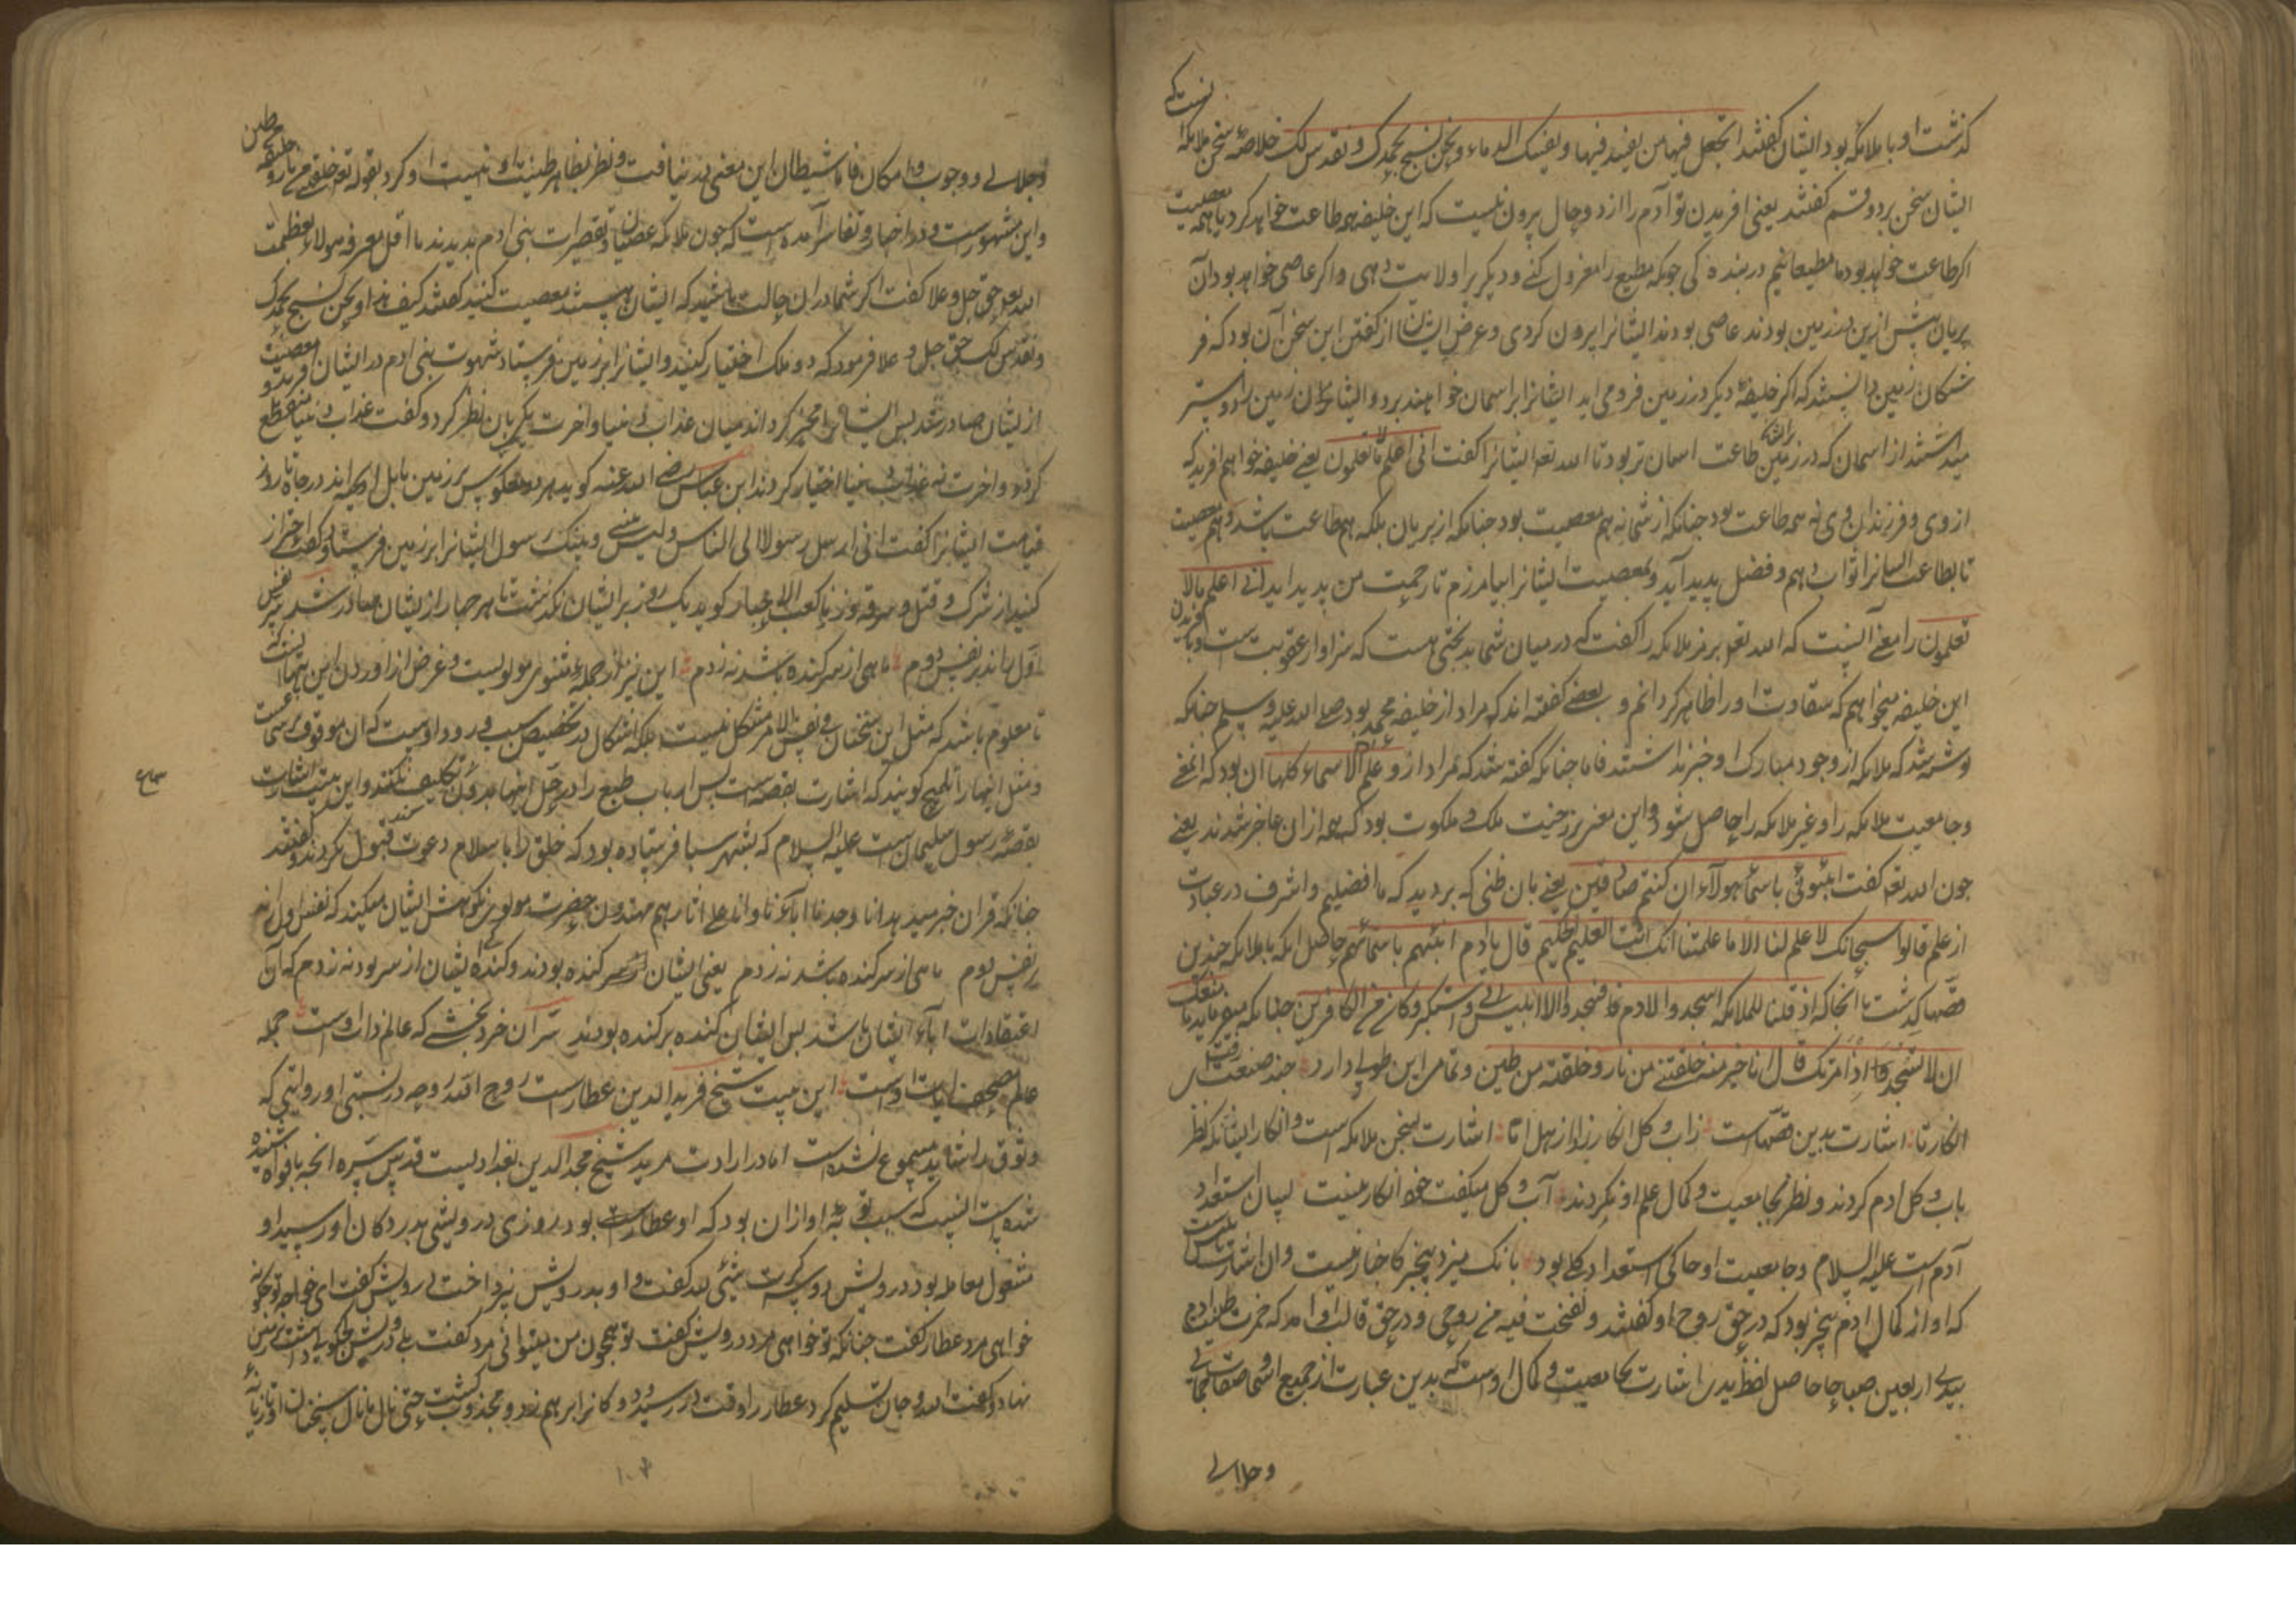 کذشت او با ملایکه بود ایشان کفتند اتجعل فیها من یفسد فیها و یسفک الدماء و نحن نسبح بحمدک و نقدس لک خلاصهٔ سخن ملایکه انست که
ایشان سخن بر دو قسم کفتند یعنی افریدن تو آدم را از دو حال بیرون نیست که این خلیفه همه طاعت خواهد کرد یا همه معصیت
اکر طاعت خواهد بود ما مطیعانیم در بنده کی جو که مطیع را معزول کنی و دیکر برا ولایت دهی و اکر عاصی خواهد بود آن
پریان پیش ازین در زمین بودند عاصی بودند ایشانرا بیرون کردی و غرض ایشان از کفتن این سخن آن بود که فر
شتکان زمین دانستند که اکر خلیفهٔ دیکر در زمین فرو می اید ایشانرا بر اسمان خواهند برد و ایشان زمین را دوستر
میداشتند از اسمان که در زمین طاعت اسان تر بود تا الله تعه ایشانرا کفت انی اعلم ما لا تعلمون یعنی خلیفه خواهم افرید که
از وی و فرزندان وی نه همه طاعت بود جنانکه از شما نه هم معصیت بود جنانکه از پریان بلکه هم طاعت باشد و هم معصیت
تا بطاعت ایشانرا ثواب دهم و فضل پدید آید و بمعصیت ایشانرا بیامرزم تا رحمت من پدید اید انی اعلم ما لا
تعلمون را معنی آنست که الله تعه بر رمز ملایکه را کفت که در میان شما بدبختی هست که سزاوار عقوبت است و بافریدن
این خلیفه میخواهم که شقاوت او را ظاهر کردانم و بعضی کفته اند که مراد از خلیفه محمد بود صلی الله علیه و سلم جنانکه
نوشته شد که ملایکه از وجود مبارک او خبر نداشتند فاما جنانکه کفته شد که مراد از و علم آدم الاسماء کلها ان بود که معنی
و جامعیت ملایکه را و غیر ملایکه را حاصل شود و این معنی برزخیت ملک و ملکوت بود که همه از ان عاجز شدند یعنی
جون الله تعه کفت انبئونی باسماء هولاء ان کنتم صادقین یعنی بان ظنی که بردید که ما افضلیم و اشرف در عبادت
از علم قالوا سبحانک لا علم لنا الا ما علمتنا انک انت العلیم الحکیم قال یا ادم انبئهم باسمائهم حاصل انکه با ملایکه جندین
قصها کذشت تا انجا که اذ قلنا للملایکه اسجدوا لادم فسجدوا الا ابلیس ابی و استکبر و کان من الکافرین جنانکه میفرماید ما منعک
ان لا تسجد اذ امرتک قال انا خیر منه خلقتنی من نار و خلقته من طین و تمامی این طولی دارد جند صنعت رفت
انکار تا اشارت بدین قصهاست ز آب و کل انکار زاد از هل اتی اشارت بسخن ملایکه است و انکار ایشان که نظر
باب و کل ادم کردند و نظر بجامعیت و کمال علم او نکردند آب و کل میکفت خود انکار نیست لبیان استعداد
آدم است علیه السلام و جامعیت او حاکی استعداد کلی بود بانک میزد بیخبر کاخبار نیست و ان اشارت بابلیس است
که او از کمال ادم بیخبر بود که در حق روح او کفتند و نفخت فیه من روحی و در حق قالب او امد که خمرت طینة ادم
بیدی اربعین صباحا حاصل لفظ یدی اشارت بجامعیت و کمال اوست که بدین عبارت از جمیع اسما صفات جمالی
و جلالی
و جلالی و وجوب و امکان فاما شیطان این معنی در نیافت و نظر بظاهر طینت او نهیت او کرد بقوله تعه خلقتنی من نار و خلقته من طین
و این مشهورست و در اخبار و تفاسیر آمده است که جون ملایکه عصیان و تقصیرات بنی ادم بدیدند ما اقل معرفة هولاء بعظمت
الله تعه حق جل و علا کفت اکر شما در ان حالت باشید که ایشان هستند معصیت کنید کفتند کیف هذا و نحن نسبح بحمدک
و نقدس لک حق جل و علا فرمود که دو ملک اختیار کنید و ایشانرا بر زمین فرستاد شهوت بنی ادم در ایشان افرید و معصیت
از ایشان صادر شد پس ایشانرا مخیر کردانید میان عذاب دنیا و اخرت یکی بان نظر کرد و کفت عذاب دنیا منقطع
کردد و اخرت نه عذاب دنیا اختیار کردند ابن عباس رضی الله عنه کوید هر دو معکوس بر زمین بابل اویخته اند در جاه تا روز
قیامت ایشانرا کفت انی ارسل رسولا الی الناس و لیس بینی و بینک رسول ایشانرا بر زمین فرستاد و کفت احتراز
کنید از شرک و قتل و سرقه و زنا کعب الاحبار کوید یک روز بر ایشان نکذشت تا هر جهار از ایشان صادر شد نفس
اول راند بر نفس دوم ماهی از سر کنده باشد نه ز دم این نیز از جمله مثنوی مولویست و غرض از اوردن این بیتها انست که
تا معلوم باشد که مثل این سخنان فی نفس الامر مشکل نیست بلکه اشکال در تخصیص سبب ورود اوست که ان موقوف بر سماعست
و مثل اینها را تلمیح کویند که اشارت بقصه است پس ارباب طبع را در حل اینها بدو تکلیف نکنند و این بیت اشارت
سماع
بقصهٔ رسول سلیمان است علیه السلام که بشهر سبا فرستاده بود که خلق را باسلام دعوت کند قبول نکردند و کفتند
جنانکه قران خبر میدهد انا وجدنا اباءنا و انا علی اثارهم مهتدون حضرت مولوی نکوهش ایشان میکند که نفس اول راند
بر نفس دوم ماهی از سر کنده باشد نه ز دم یعنی ایشان از سر کنده بودند و کنده ایشان از سر بود نه ز دم که آن
اعتقادات اباء ایشان باشد پس ایشان کنده بر کنده بودند سر آن خرد بخشی که عالم ذات اوست جمله
عالم مصحف ایات اوست این بیت شیخ فرید الدین عطارست روح الله روحه در نسبتی او روایتی که
وثوق را شاید مسموع نشده است اما در ارادت مرید شیخ مجد الدین بغدادیست قدس سره انجه بافواه شنیده
شده است انست که سبب توبهٔ او از ان بود که او عطار بود روزی درویشی بدر دکان او رسید و او
مشغول معامله بود درویش دو سه کرت شیئی لله کفت و او بدرویش نپرداخت درویش کفت ای خواجه تو جکونه
خواهی مرد عطار کفت جنانکه تو خواهی مرد درویش کفت تو همجون من میتوانی مرد کفت بلی درویش کاسه جوبین داشت زیر سر
نهاد و کفت الله و جان تسلیم کرد عطار را وقت در رسید و دکانرا بر هم زد و مجذوب کشت حتی نال ما نال سخنان او تازیانه